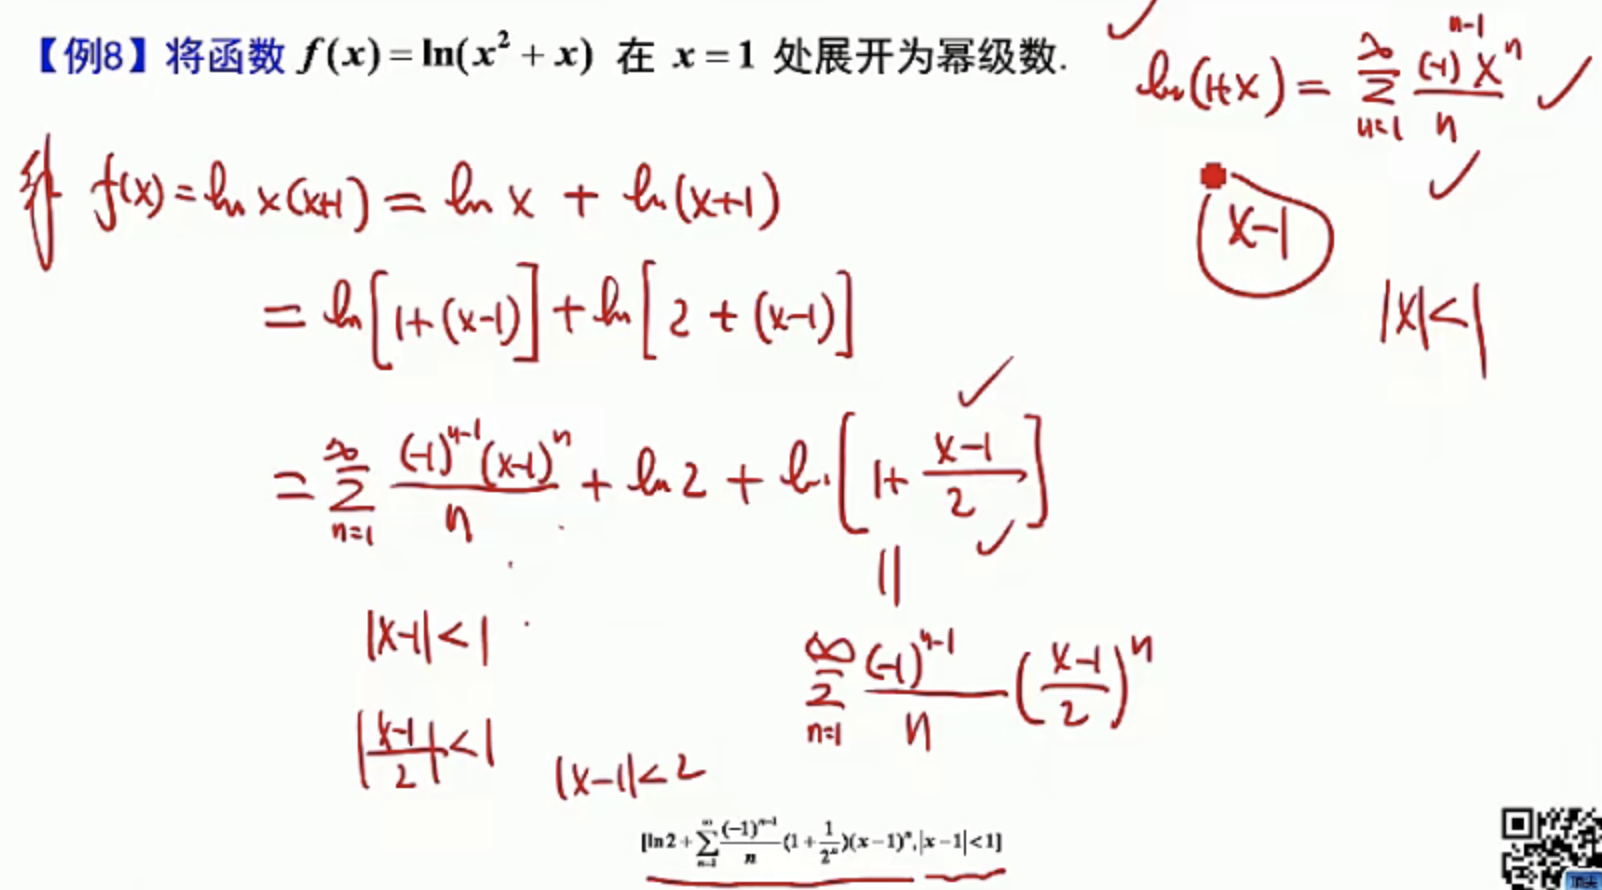 【例8】将函数 f(x)=ln(x²+x) 在 x=1 处展开为幂级数.
ln(1+x) = ∑_{n=1}^{∞} (-1)^{n-1} x^n / n
x-1
|x|<1
解 f(x)=ln x(x+1) = ln x + ln(x+1)
= ln[1+(x-1)] + ln[2+(x-1)]
= ∑_{n=1}^{∞} (-1)^{n-1}(x-1)^n / n + ln2 + ln[1+ (x-1)/2]
||
|x-1|<1
∑_{n=1}^{∞} (-1)^{n-1} / n ((x-1)/2)^n
|(x-1)/2|<1 |x-1|<2
[ln2+∑_{n=1}^{∞} (-1)^{n-1}/n (1+1/2^n)(x-1)^n,|x-1|<1]